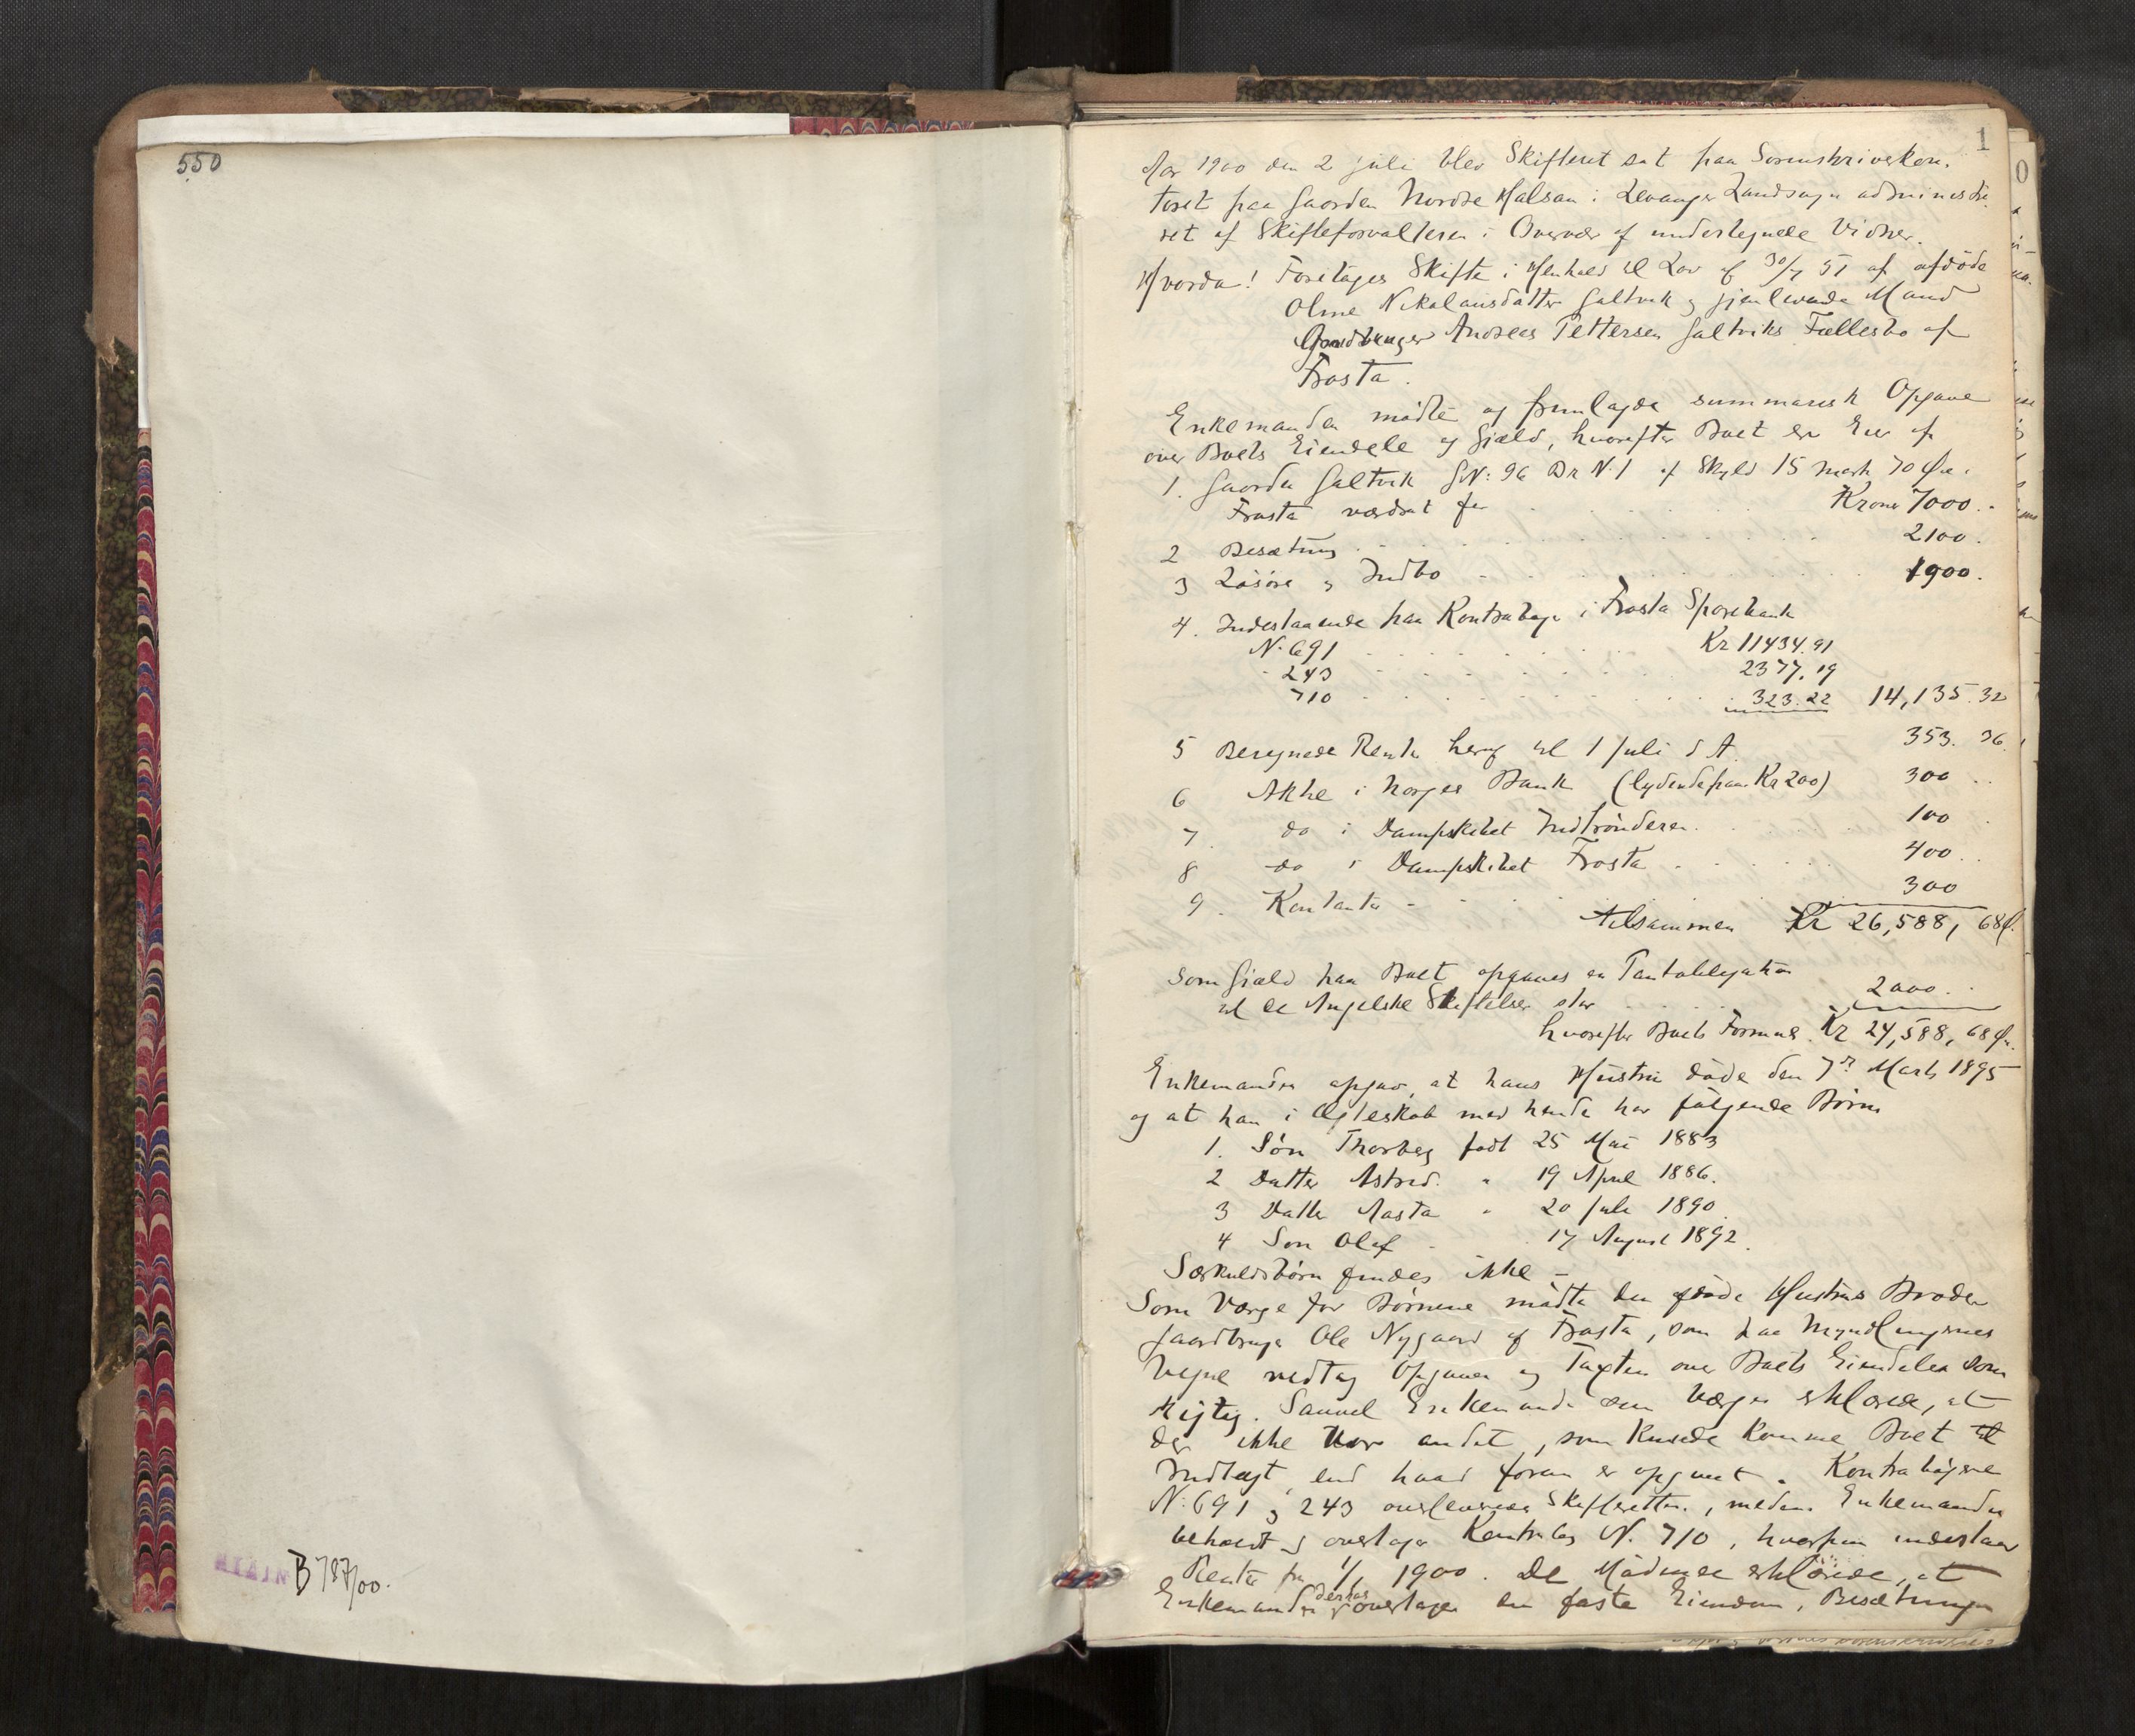 550
B 787/00.
1
Aar 1900 den 2 juli blev Skifteret sat paa Sorenskriverkon-
toret paa Gaarden Nordre Halsan i Levanger Landsogn administre-
ret af Skifteforvalteren i Overvær af undertegnede Vidner.
Hvorda! Foretages Skifte i Henhold til Lov af 30/7 51 af afdöde
Oline Nikolausdatter Galtvik og gjenlevende Mand
Gaardbruger Andreas Pettersen Galtviks Fællesbo af
Frosta.
Enkemanden mödte og fremlagde summarisk Opgave
over Boets Eiendele og Gjæld, hvorefter Boet er Eier af
1. Gaarden Galtvik GN: 96 Br N. 1 af Skyld 15 mark 70 Øre i
Frosta værdsat for Kroner 7000. -
2 Besætning 2100.
3 Lösöre og Indbo 1900.
4. Indestaaende paa Kontrabøger i Frosta Sparebank
N. 691 Kr 11434.91
- 243 2377.19
710 323.22 14,135.32
5 Beregnede Renter heraf til 1 Juli d A 353. 36.
6 Aktie i Norges Bank (lydende paa Kr 200) 300 ..
7. do i Dampskibet Indtrönderen 100 .
8 do i Dampskibet Frosta 400 ..
9. Kontanter 300
tilsammen Kr 26,588, 68 Ø.
Som Gjæld paa Boet opgaves en Pantobligation
til de Angelske Stiftelser stor 2000. .
hvorefter Boets Formue Kr 24,588, 68 Ø.
Enkemanden opgav, at hans Hustru döde den 7de Marts 1895
og at han i Ægteskab med hende har fölgende Börn
1. Sön Thorberg födt 25 Mai 1883
2 Datter Astrid. " 19 April 1886.
3 Datter Aasta " 20 Juli 1890.
4 Son Olaf - 17 August 1892.
Særkuldsbörn findes ikke -
Som Værge for Börnene mödte den afdöde Hustrus Broder
Gaardbruger Ole Nygaard af Frosta, som paa Myndlingernes
Vegne vedtog Opgaven og Taxten over Boets Eiendele som
rigtig. Saavel Enkemanden som Værgen erklærede, at
der ikke var andet, som kunde komme Boet til
Indtægt, end hvad foran er opgivet. Kontrabögerne
N: 691 og 243 overleveres Skifteretten, medens Enkemanden
beholdt og overtager Kontrabog N. 710, hvorpaa indestaar
Renter fra 1/1 1900. De Mödende erklærede, at
Enkemanden derhos overtager den faste Eiendom, Besætningen